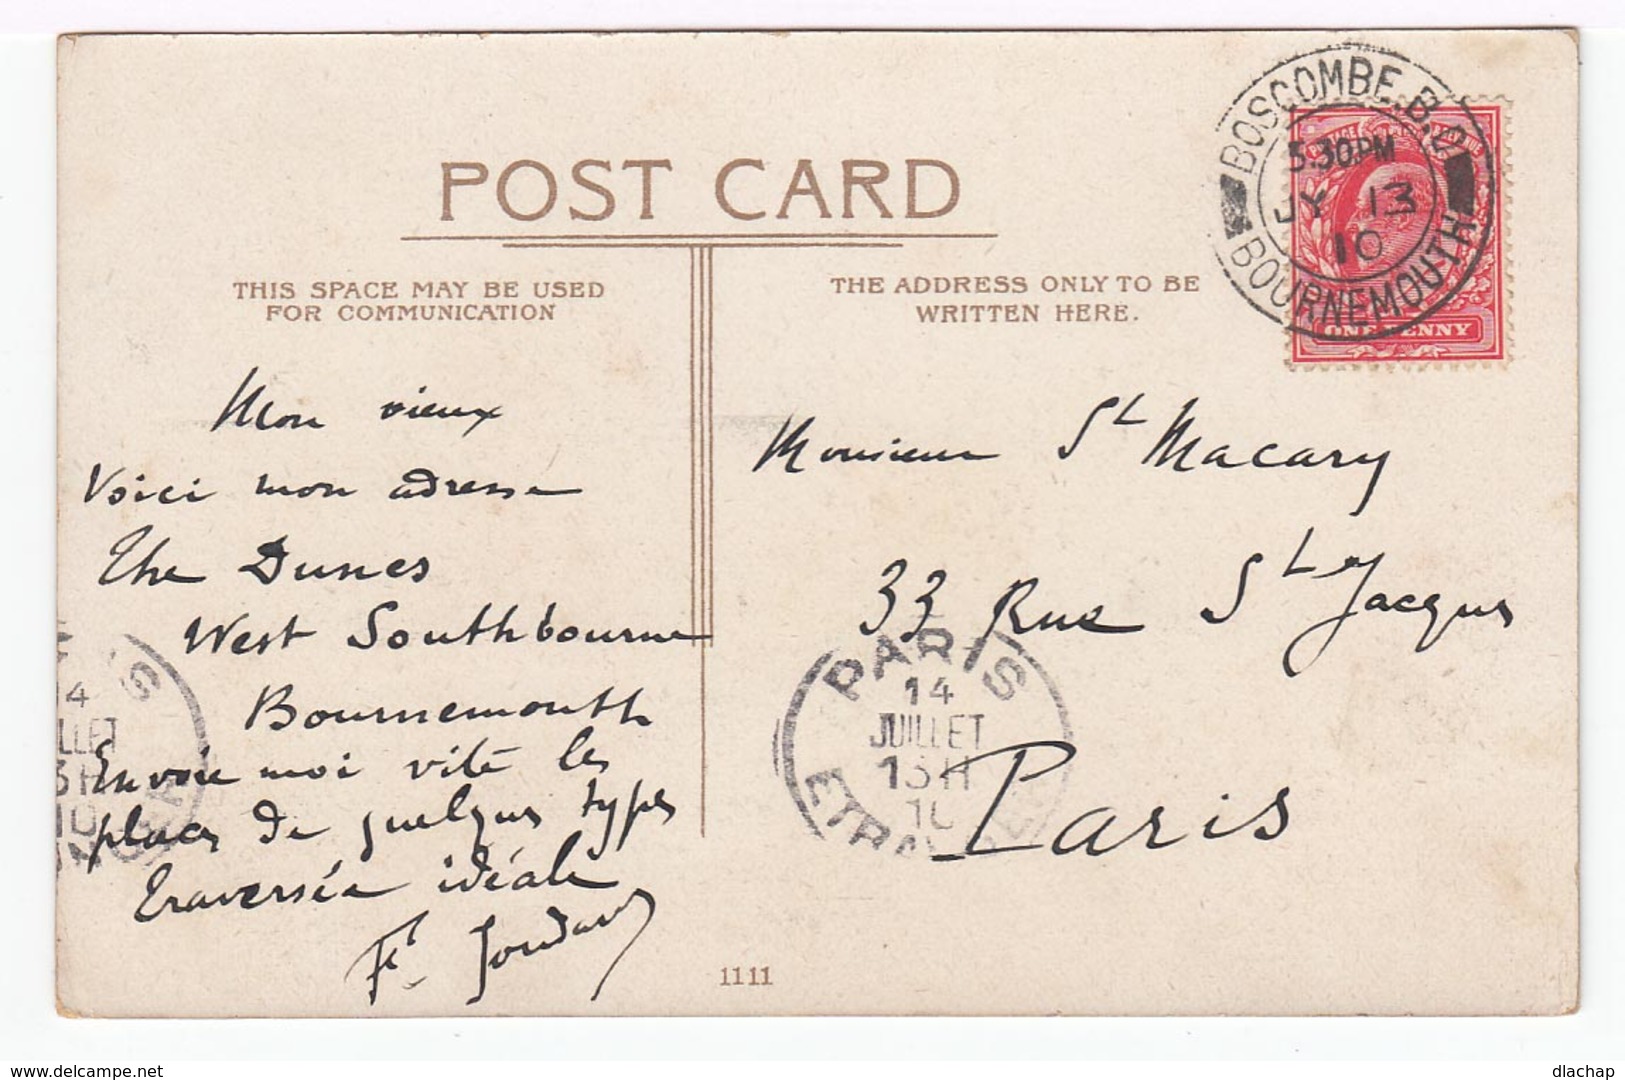 POST CARD
THIS SPACE MAY BE USED
FOR COMMUNICATION
THE ADDRESS ONLY TO BE
WRITTEN HERE.
BOSCOMBE. B.O.
5.30PM
JY 13
10
BOURNEMOUTH
ONE PENNY
Mon vieux
Voici mon adresse
The Dunes
West Southbourne
Bournemouth
Envoie moi vite les
places de quelques types
Traversée idéale
F. Jourdan
Monsieur St Macary
33 Rue St Jacques
Paris
PARIS
14
JUILLET
10
1111
www.delcampe.net
dlachap